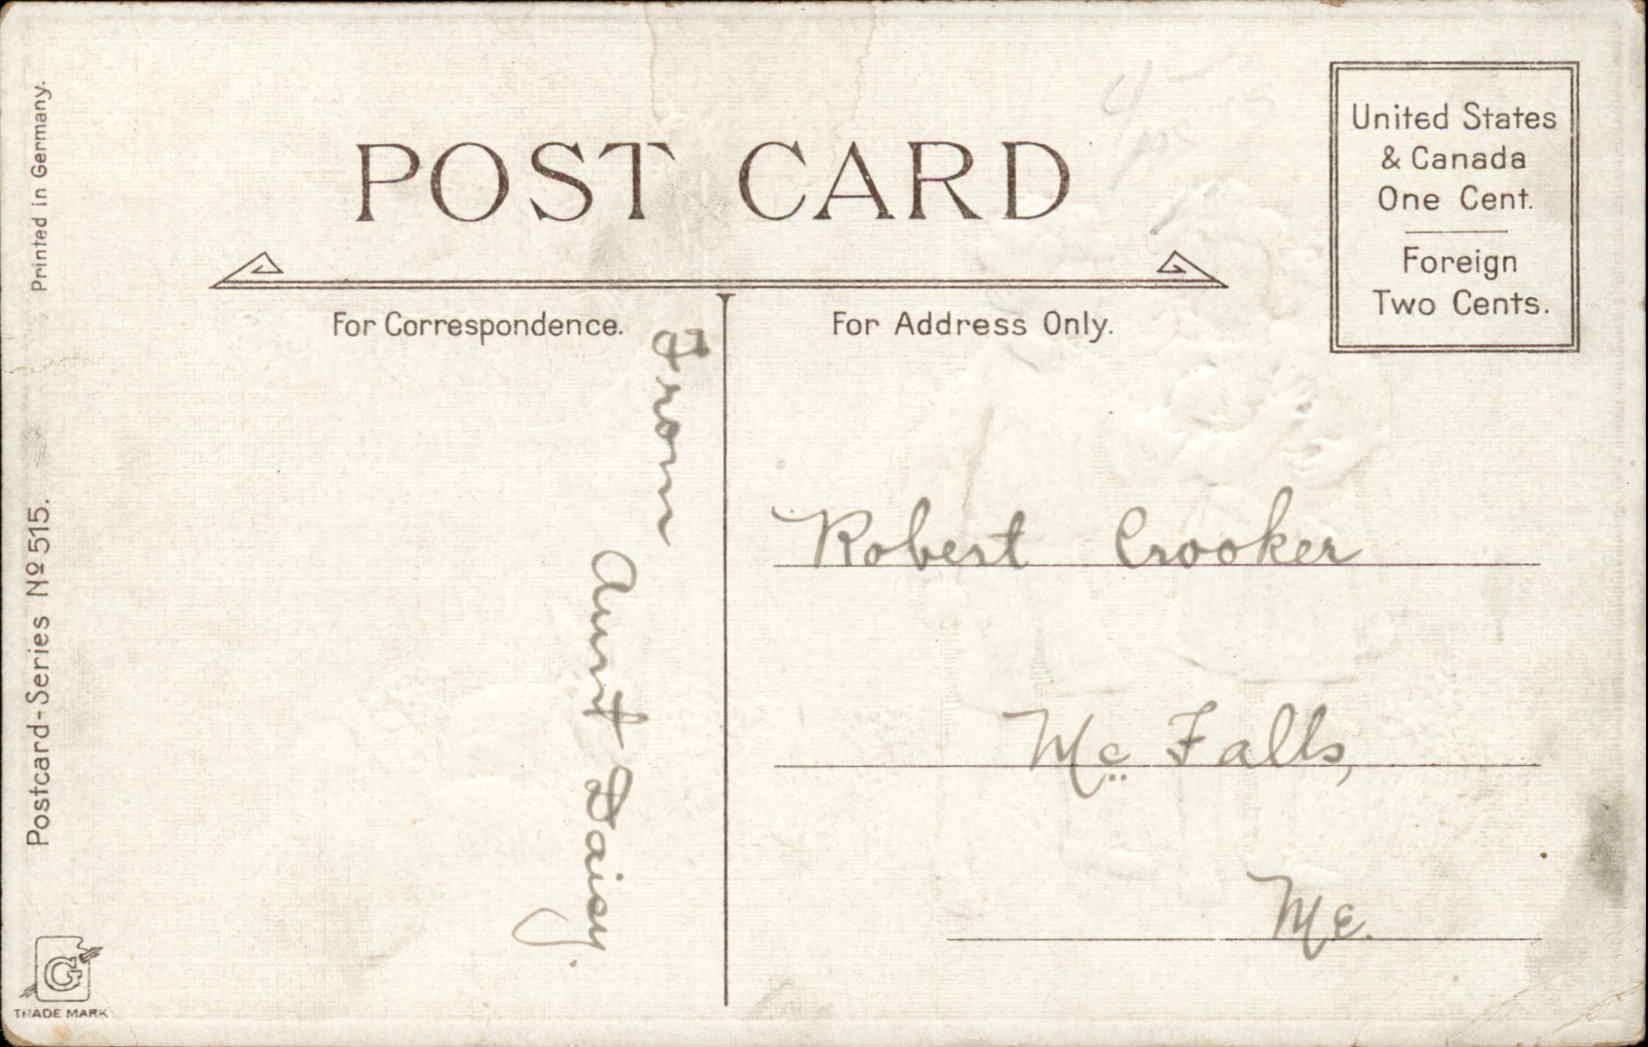 POST CARD
United States
& Canada
One Cent.
Foreign
Two Cents.
For Correspondence.
For Address Only.
From
Aunt Daisy.
Robert Crooker
Mc Falls,
Me.
Printed in Germany.
Postcard-Series No 515.
G
TRADE MARK